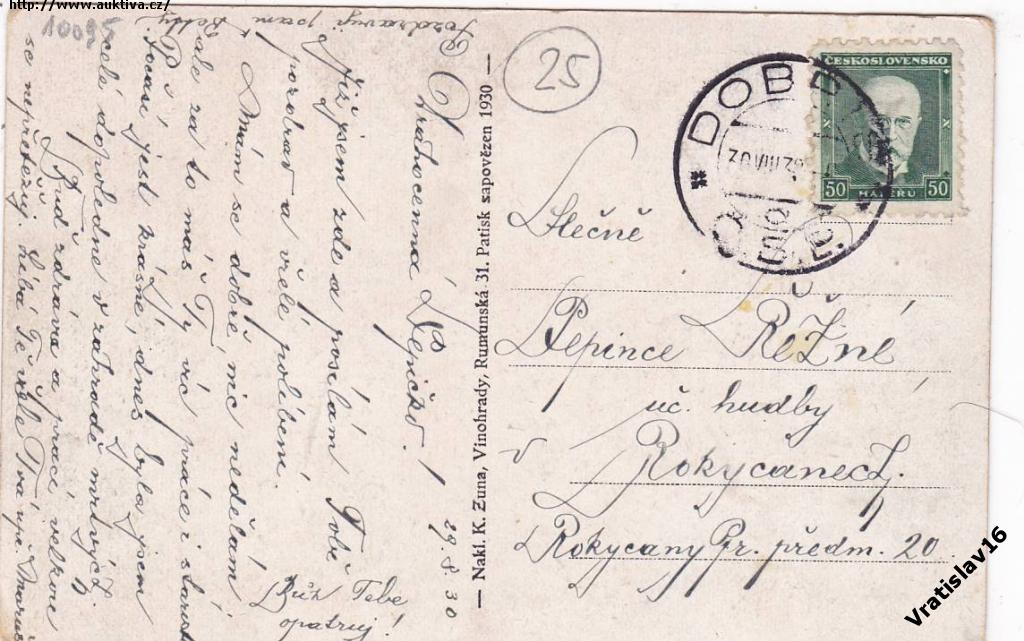 http://www.auktiva.cz/
10095
Pozdravuji paní
Drahocenná Pepičko!
již jsem zde a posílám Tobě
pozdrav a vřelé políbení.
Mám se dobře nic nedělám
ale za to máš Ty víc práce i starostí
Počasí jest krásné, dnes byla jsem
celé dopoledne v zahradě mrtvých.
Buď zdráva a prací velkou
se nepřetěžuj. Líbá Tě Tvá
29.8.30
Bůh Tebe
opatruj!
Nakl. K. Zuna, Vinohrady, Rumunská 31. Patisk zapovězen 1930
25
DOB
ČESKOSLOVENSKO
50 HALÉŘŮ 50
Slečně
Pepince Režné
uč. hudby
v Rokycanech.
Rokycany Pr. předm. 20
Vratislav16